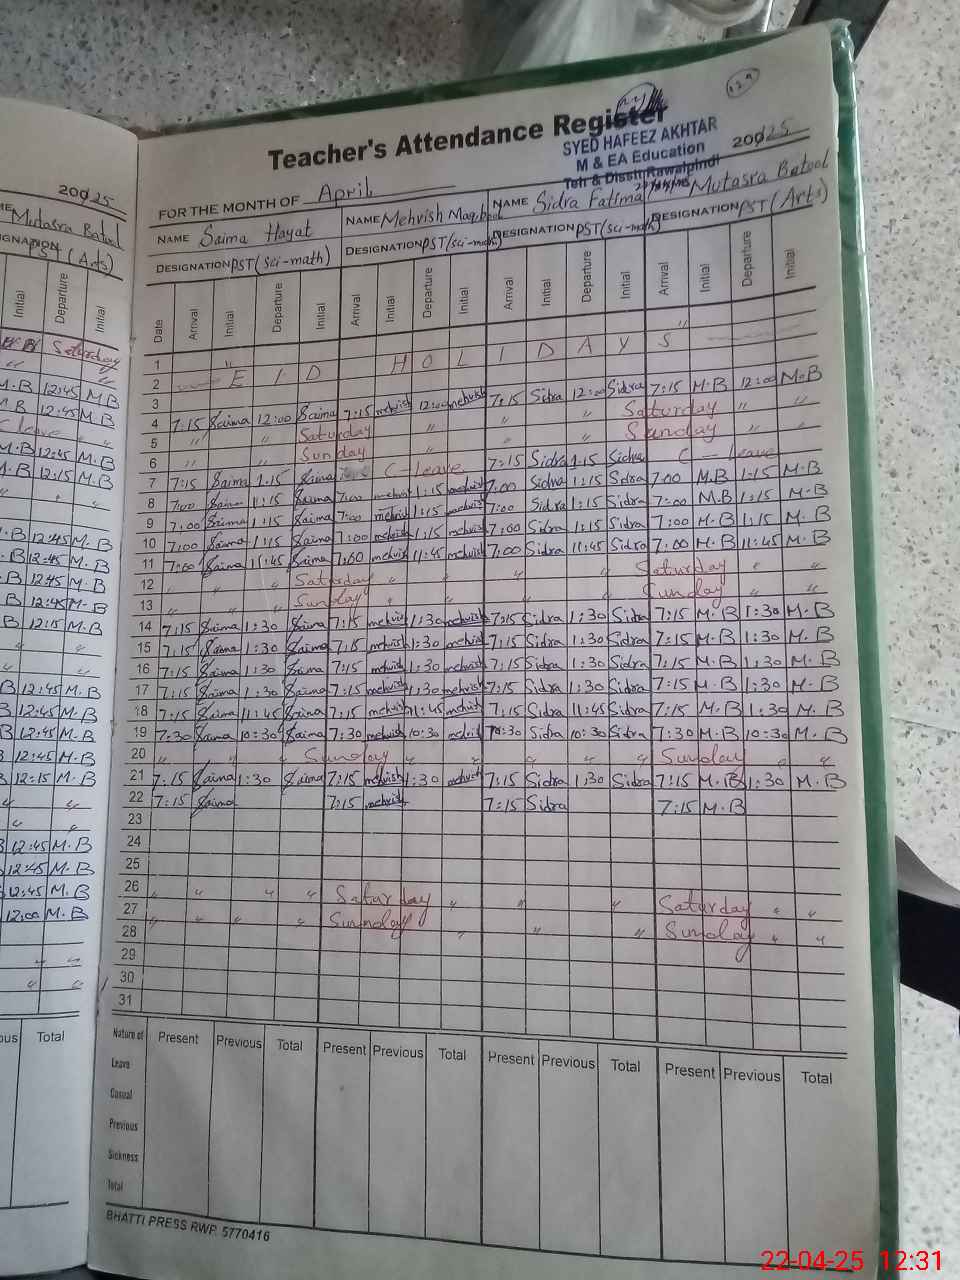 Teacher's Attendance Register
SYED HAFEEZ AKHTAR
M & EA Education
Teh & Disstt Rawalpindi
2025
FOR THE MONTH OF April
NAME Saima Hayat NAME Mehvish Maqbool NAME Sidra Fatima Mutasra Batool
DESIGNATION PST (sci-math) DESIGNATION PST (sci-math) DESIGNATION PST (sci-math) DESIGNATION PST (Arts)
Date Arrival Initial Departure Initial Arrival Initial Departure Initial Arrival Initial Departure Initial Arrival Initial Departure Initial
1
2 EID HOLIDAYS
3
4 7:15 Saima 12:00 Saima 7:15 mehvish 12:00 mehvish 7:15 Sidra 12:00 Sidra 7:15 M.B 12:00 M.B
5 " " Saturday " " " Saturday " "
6 " " Sunday " " " Sunday " "
7 7:15 Saima 1:15 Saima C-leave 7:15 Sidra 1:15 Sidra C-leave
8 7:00 Saima 1:15 Saima 7:00 mehvish 1:15 mehvish 7:00 Sidra 1:15 Sidra 7:00 M.B 1:15 M.B
9 7:00 Saima 1:15 Saima 7:00 mehvish 1:15 mehvish 7:00 Sidra 1:15 Sidra 7:00 M.B 1:15 M.B
10 7:00 Saima 1:15 Saima 7:00 mehvish 1:15 mehvish 7:00 Sidra 1:15 Sidra 7:00 M.B 1:15 M.B
11 7:00 Saima 11:45 Saima 7:00 mehvish 11:45 mehvish 7:00 Sidra 11:45 Sidra 7:00 M.B 11:45 M.B
12 " " Saturday " " " Saturday " "
13 " " " Sunday " " " Sunday " "
14 7:15 Saima 1:30 Saima 7:15 mehvish 1:30 mehvish 7:15 Sidra 1:30 Sidra 7:15 M.B 1:30 M.B
15 7:15 Saima 1:30 Saima 7:15 mehvish 1:30 mehvish 7:15 Sidra 1:30 Sidra 7:15 M.B 1:30 M.B
16 7:15 Saima 1:30 Saima 7:15 mehvish 1:30 mehvish 7:15 Sidra 1:30 Sidra 7:15 M.B 1:30 M.B
17 7:15 Saima 1:30 Saima 7:15 mehvish 1:30 mehvish 7:15 Sidra 1:30 Sidra 7:15 M.B 1:30 M.B
18 7:15 Saima 11:45 Saima 7:15 mehvish 11:45 mehvish 7:15 Sidra 11:45 Sidra 7:15 M.B 1:30 M.B
19 7:30 Saima 10:30 Saima 7:30 mehvish 10:30 mehvish Sidra 10:30 Sidra 7:30 M.B 10:30 M.B
20 " " " Sunday " " " " Sunday " "
21 7:15 Saima 1:30 Saima 7:15 mehvish 1:30 mehvish 7:15 Sidra 1:30 Sidra 7:15 M.B 1:30 M.B
22 7:15 Saima 7:15 mehvish 7:15 Sidra 7:15 M.B
23
24
25
26 " " " " Saturday " " " Saturday " "
27 " " " " Sunday " " " Sunday " "
28
29
30
31
Nature of Leave Present Previous Total Present Previous Total Present Previous Total Present Previous Total
Casual
Previous
Sickness
Total
BHATTI PRESS RWP. 5770416
2025
Mutasra Batool
PST (Arts)
Initial Departure Initial
Saturday
M.B 12:45 M.B
12:45 M.B
C leave
M.B 12:45 M.B
M.B 12:15 M.B
12:45 M.B
12:45 M.B
12:45 M.B
12:45 M.B
12:15 M.B
12:45 M.B
12:45 M.B
12:45 M.B
12:45 M.B
12:15 M.B
12:45 M.B
12:45 M.B
12:45 M.B
12:00 M.B
Total
22-04-25 12:31